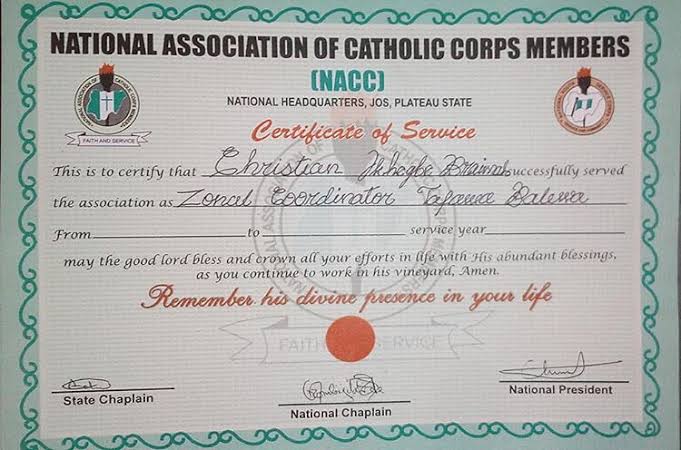 NATIONAL ASSOCIATION OF CATHOLIC CORPS MEMBERS
(NACC)
NATIONAL HEADQUARTERS, JOS, PLATEAU STATE
NATIONAL ASSOCIATION OF CATHOLIC CORPS MEMBERS
FAITH AND SERVICE
Certificate of Service
This is to certify that Christian successfully served
the association as Zonal Coordinator Tafawa Balewa
From to service year
may the good lord bless and crown all your efforts in life with His abundant blessings,
as you continue to work in his vineyard, Amen.
Remember his divine presence in your life
FAITH AND SERVICE
State Chaplain
National Chaplain
National President